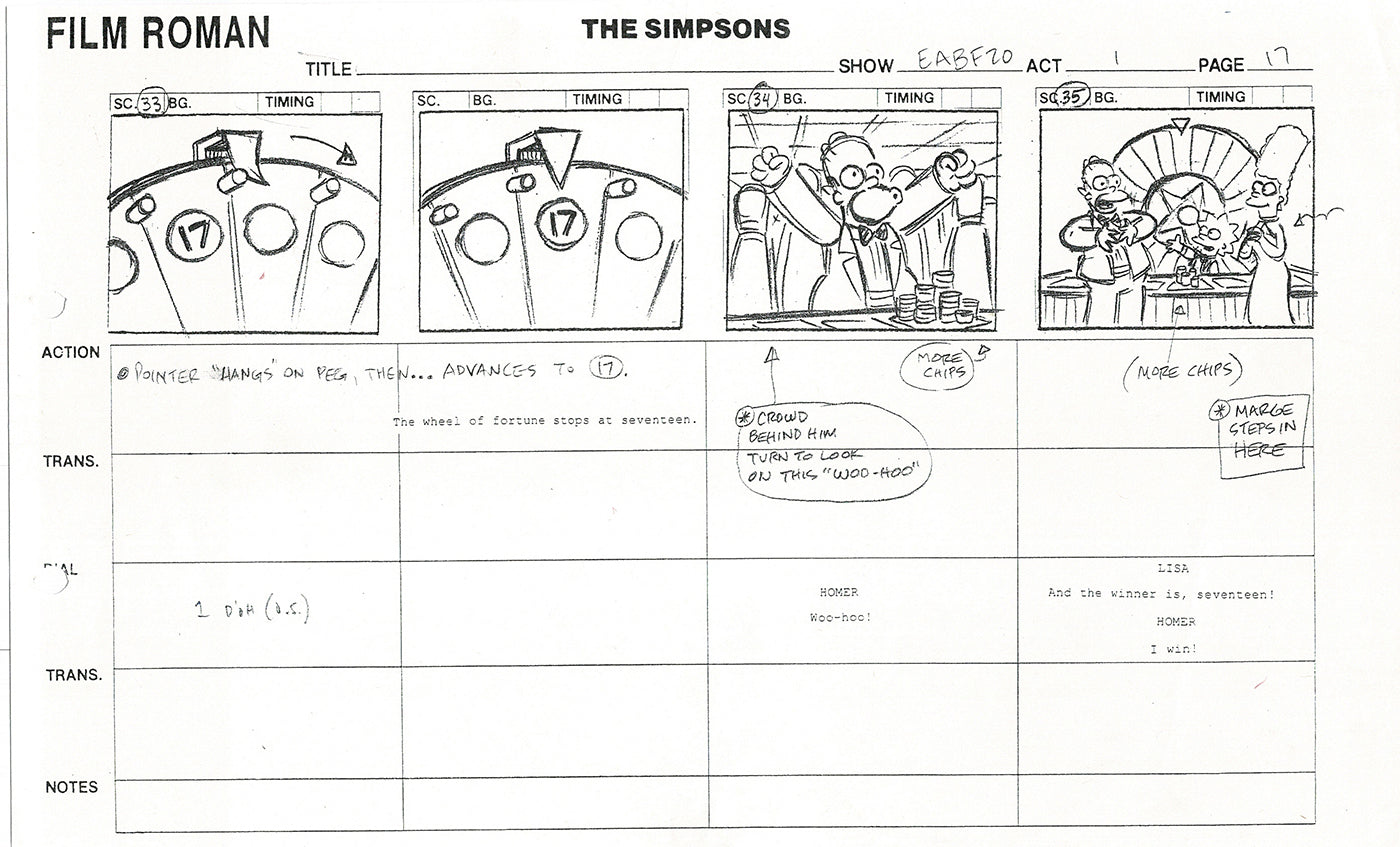 FILM ROMAN
THE SIMPSONS
TITLE
SHOW EABF20 ACT 1 PAGE 17
SC. 33 BG. TIMING
SC. BG. TIMING
SC 34 BG. TIMING
SC. 35 BG. TIMING
17
17
ACTION
POINTER "HANGS" ON PEG, THEN... ADVANCES TO 17.
The wheel of fortune stops at seventeen.
MORE
CHIPS
* CROWD
BEHIND HIM
TURN TO LOOK
ON THIS "WOO-HOO"
(MORE CHIPS)
* MARGE
STEPS IN
HERE
TRANS.
1 D'OH (O.S.)
HOMER
Woo-hoo!
LISA
And the winner is, seventeen!
HOMER
I win!
TRANS.
NOTES